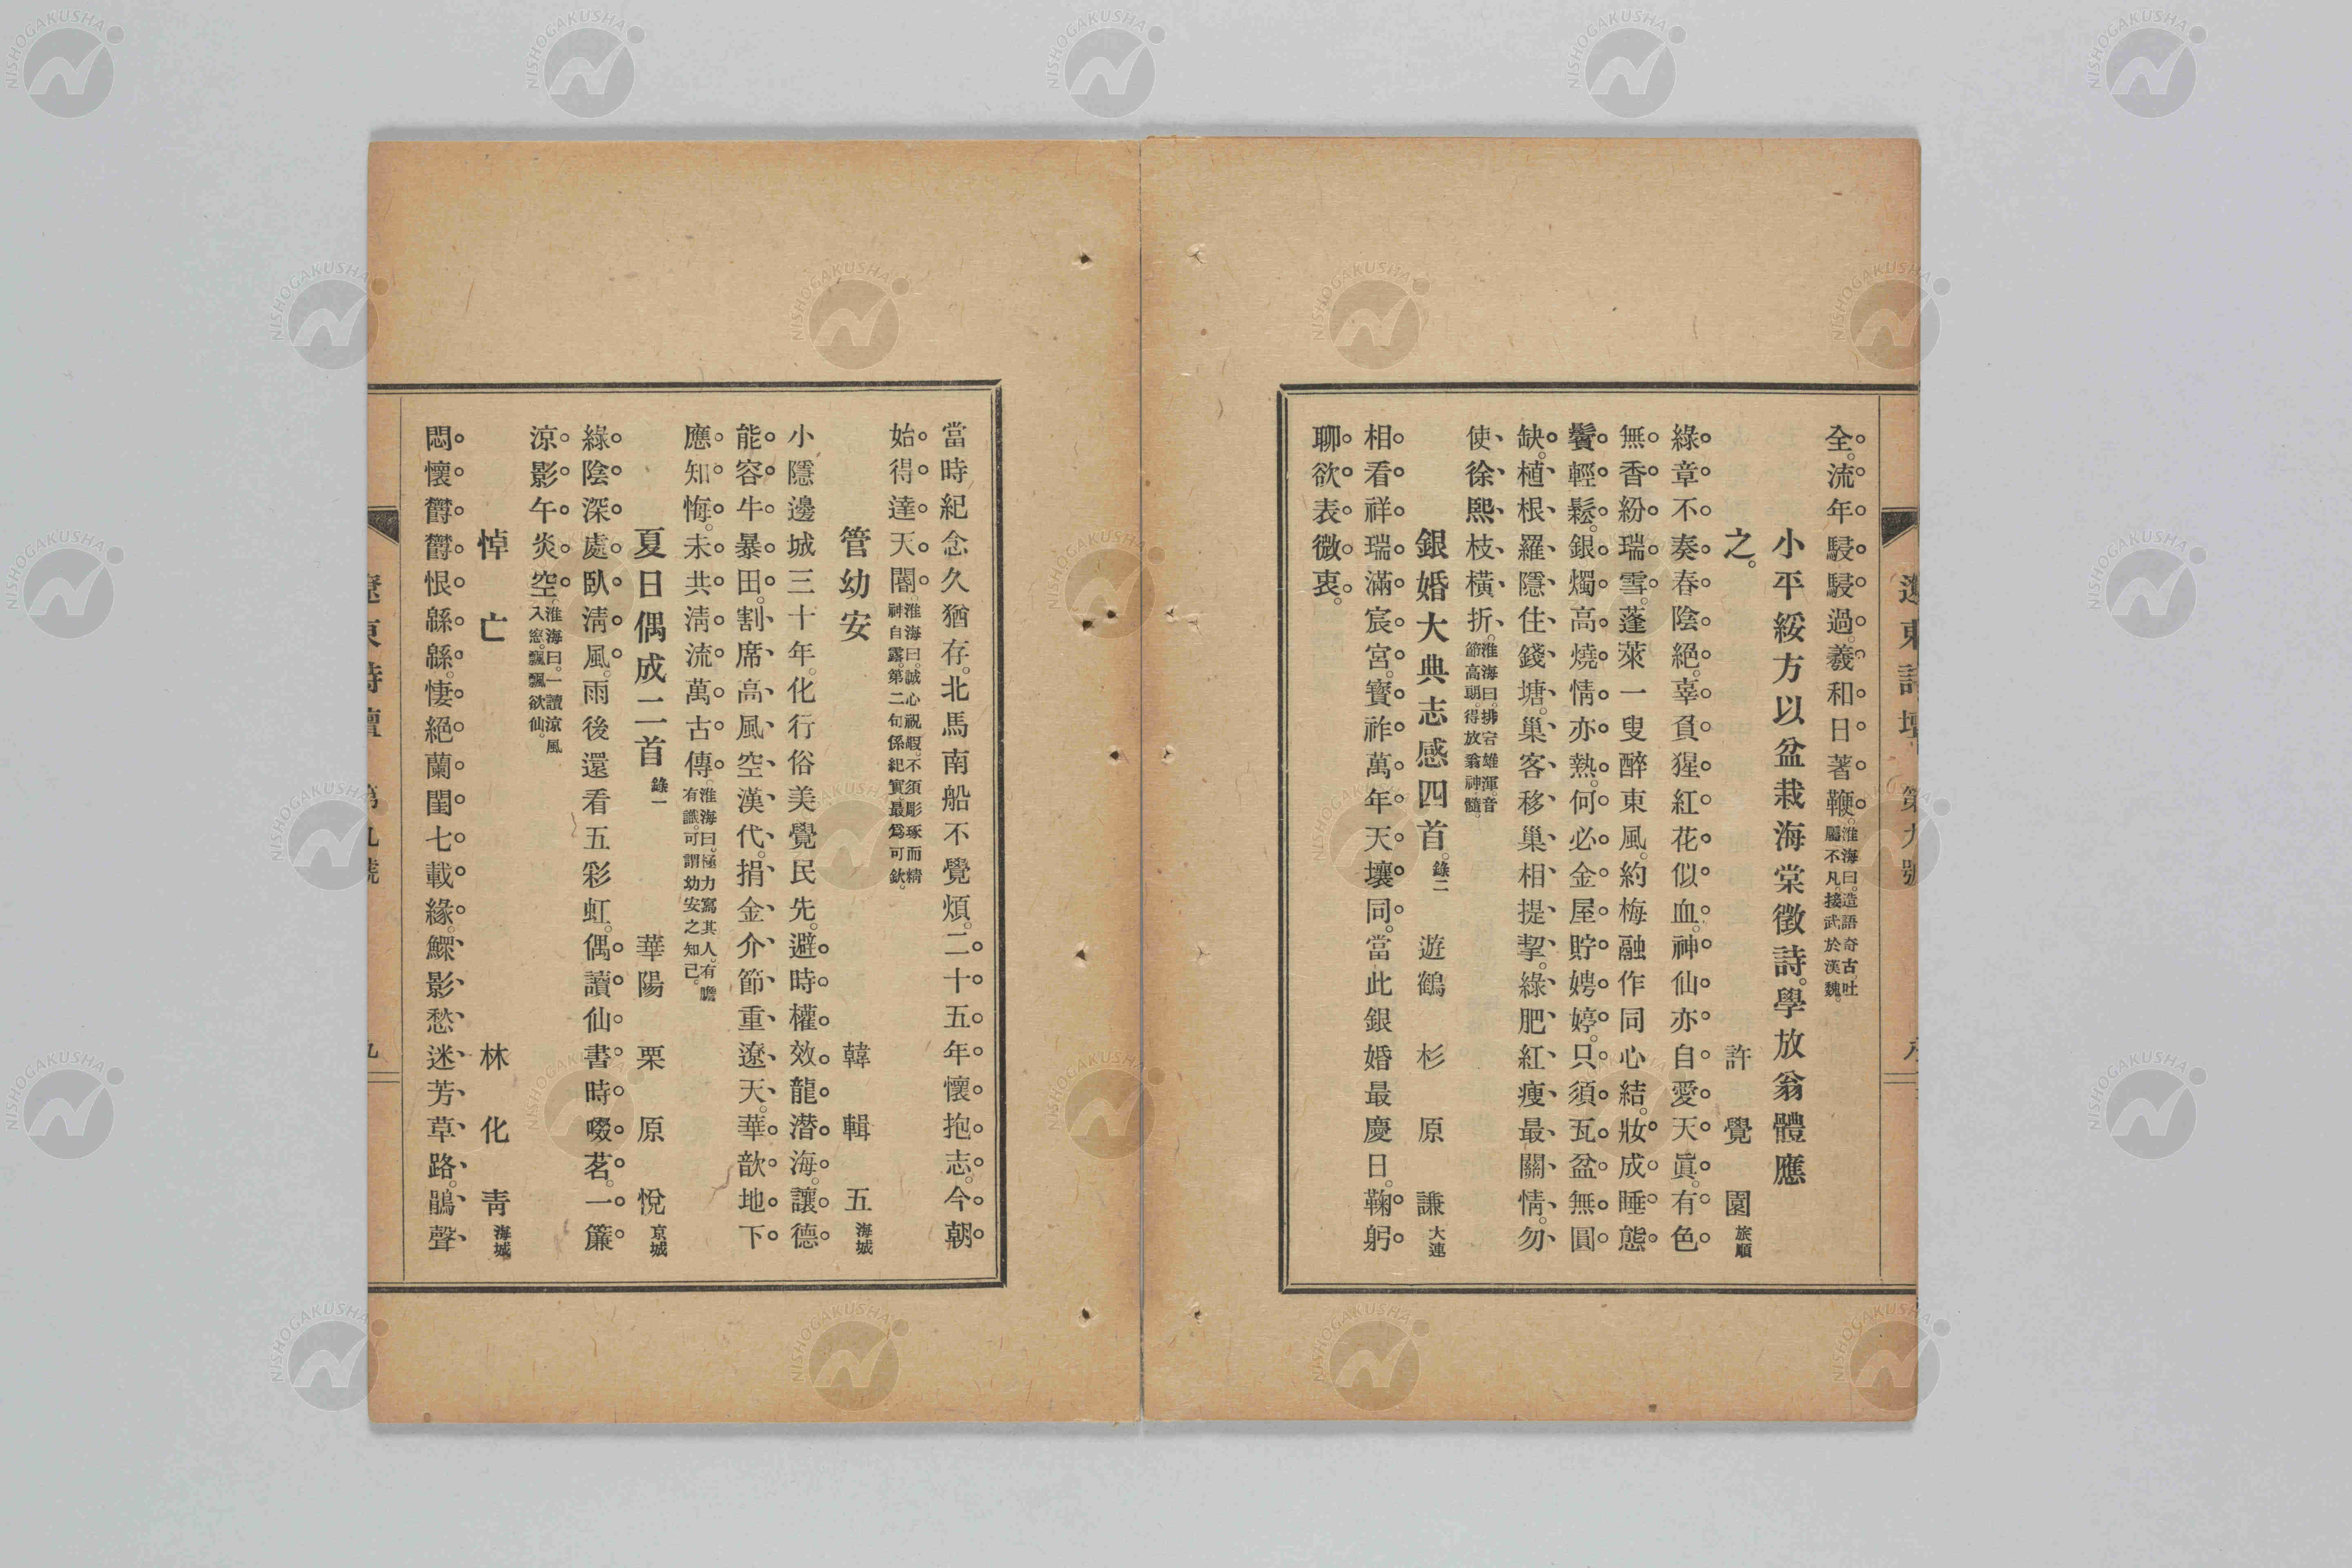 遼東詩壇 第九號
全。流年駸駸過。羲和日著鞭。淮海曰。造語奇古。吐
屬不凡。接武於漢魏。
小平綏方以盆栽海棠徵詩。學放翁體應
之。 許覺園 旅順
綠章不奏春陰絕。辜負猩紅花似血。神仙亦自愛天眞。有色
無香紛瑞雪。蓬萊一叟醉東風。約梅融作同心結。妝成睡態
鬢輕鬆。銀燭高燒情亦熱。何必金屋貯娉婷。只須瓦盆無圓
缺。植根羅隱住錢塘。巢客移巢相提挈。綠肥紅瘦最關情。勿
使徐熙枝橫折。淮海曰。排宕雄渾。音
節高朗。得放翁神髓。
銀婚大典志感四首。錄二 遊鶴 杉原謙 大連
相看祥瑞滿宸宮。寳祚萬年天壤同。當此銀婚最慶日。鞠躬
聊欲表微衷。
當時紀念久猶存。北馬南船不覺煩。二十五年懷抱志。今朝
始得達天閽。淮海曰。誠心祝嘏。不須彫琢而精
神自露。第二句係紀實。最爲可欽。
管幼安 韓輯五 海城
小隱邊城三十年。化行俗美覺民先。避時權效龍潛海。讓德
能容牛暴田。割席高風空漢代。捐金介節重遼天。華歆地下
應知悔。未共淸流萬古傳。淮海曰。極力寫其人。有膽
有識。可謂幼安之知己。
夏日偶成二首 錄一 華陽 栗原悅 京城
綠陰深處臥淸風。雨後還看五彩虹。偶讀仙書時啜茗。一簾
涼影午炎空。淮海曰。一讀涼風
入窓。飄飄欲仙。
悼亡 林化靑 海城
悶懷欝欝恨緜緜。悽絕蘭閨七載緣。鰥影愁迷芳草路。鵑聲
遼東詩壇 第九號 九